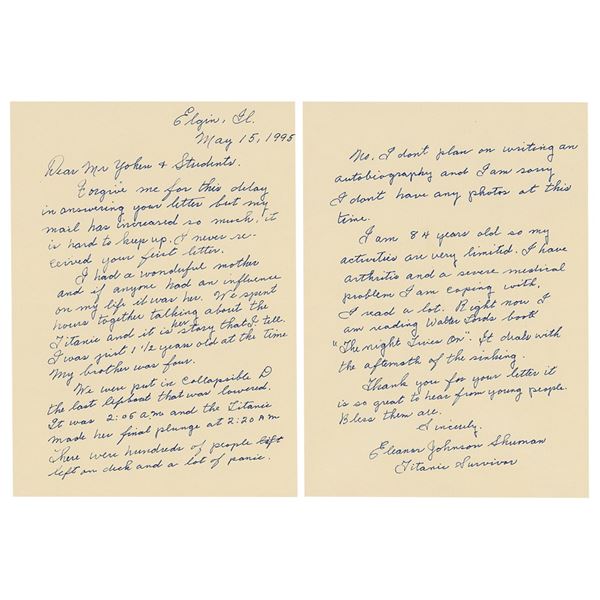 Elgin, Il.
May 15, 1995
Dear Mr Yoken & Students.
Forgive me for this delay
in answering your letter but my
mail has increased so much, it
is hard to keep up. I never re-
ceived your first letter.
I had a wonderful mother
and if anyone had an influence
on my life it was her. We spent
hours together talking about the
Titanic and it is her story that I tell.
I was just 1 1/2 years old at the time
My brother was four.
We were put in Collapsible D
the last lifeboat that was lowered.
It was 2:05 a.m and the Titanic
made her final plunge at 2:20 AM
There were hundreds of people left
left on deck and a lot of panic.
No. I dont plan on writing an
autobiography and I am sorry
I don't have any photos at this
time.
I am 84 years old so my
activities are very limited. I have
arthritis and a severe medical
problem I am coping with,
I read a lot. Right now I
am reading Walter Lords book
"The night Lives On". It deals with
the aftermath of the sinking.
Thank you for your letter it
is so great to hear from young people.
Bless them all.
Sincerely,
Eleanor Johnson Shuman
Titanic Survivor